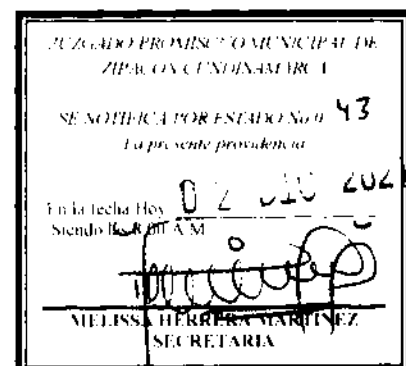 JUZGADO PROMISCUO MUNICIPAL DE
ZIPACON CUNDINAMARCA
SE NOTIFICA POR ESTADO No 0 43
La presente providencia
En la fecha Hoy 02
Siendo las 8:00 A M
MELISSA HERRERA MARTINEZ
SECRETARIA